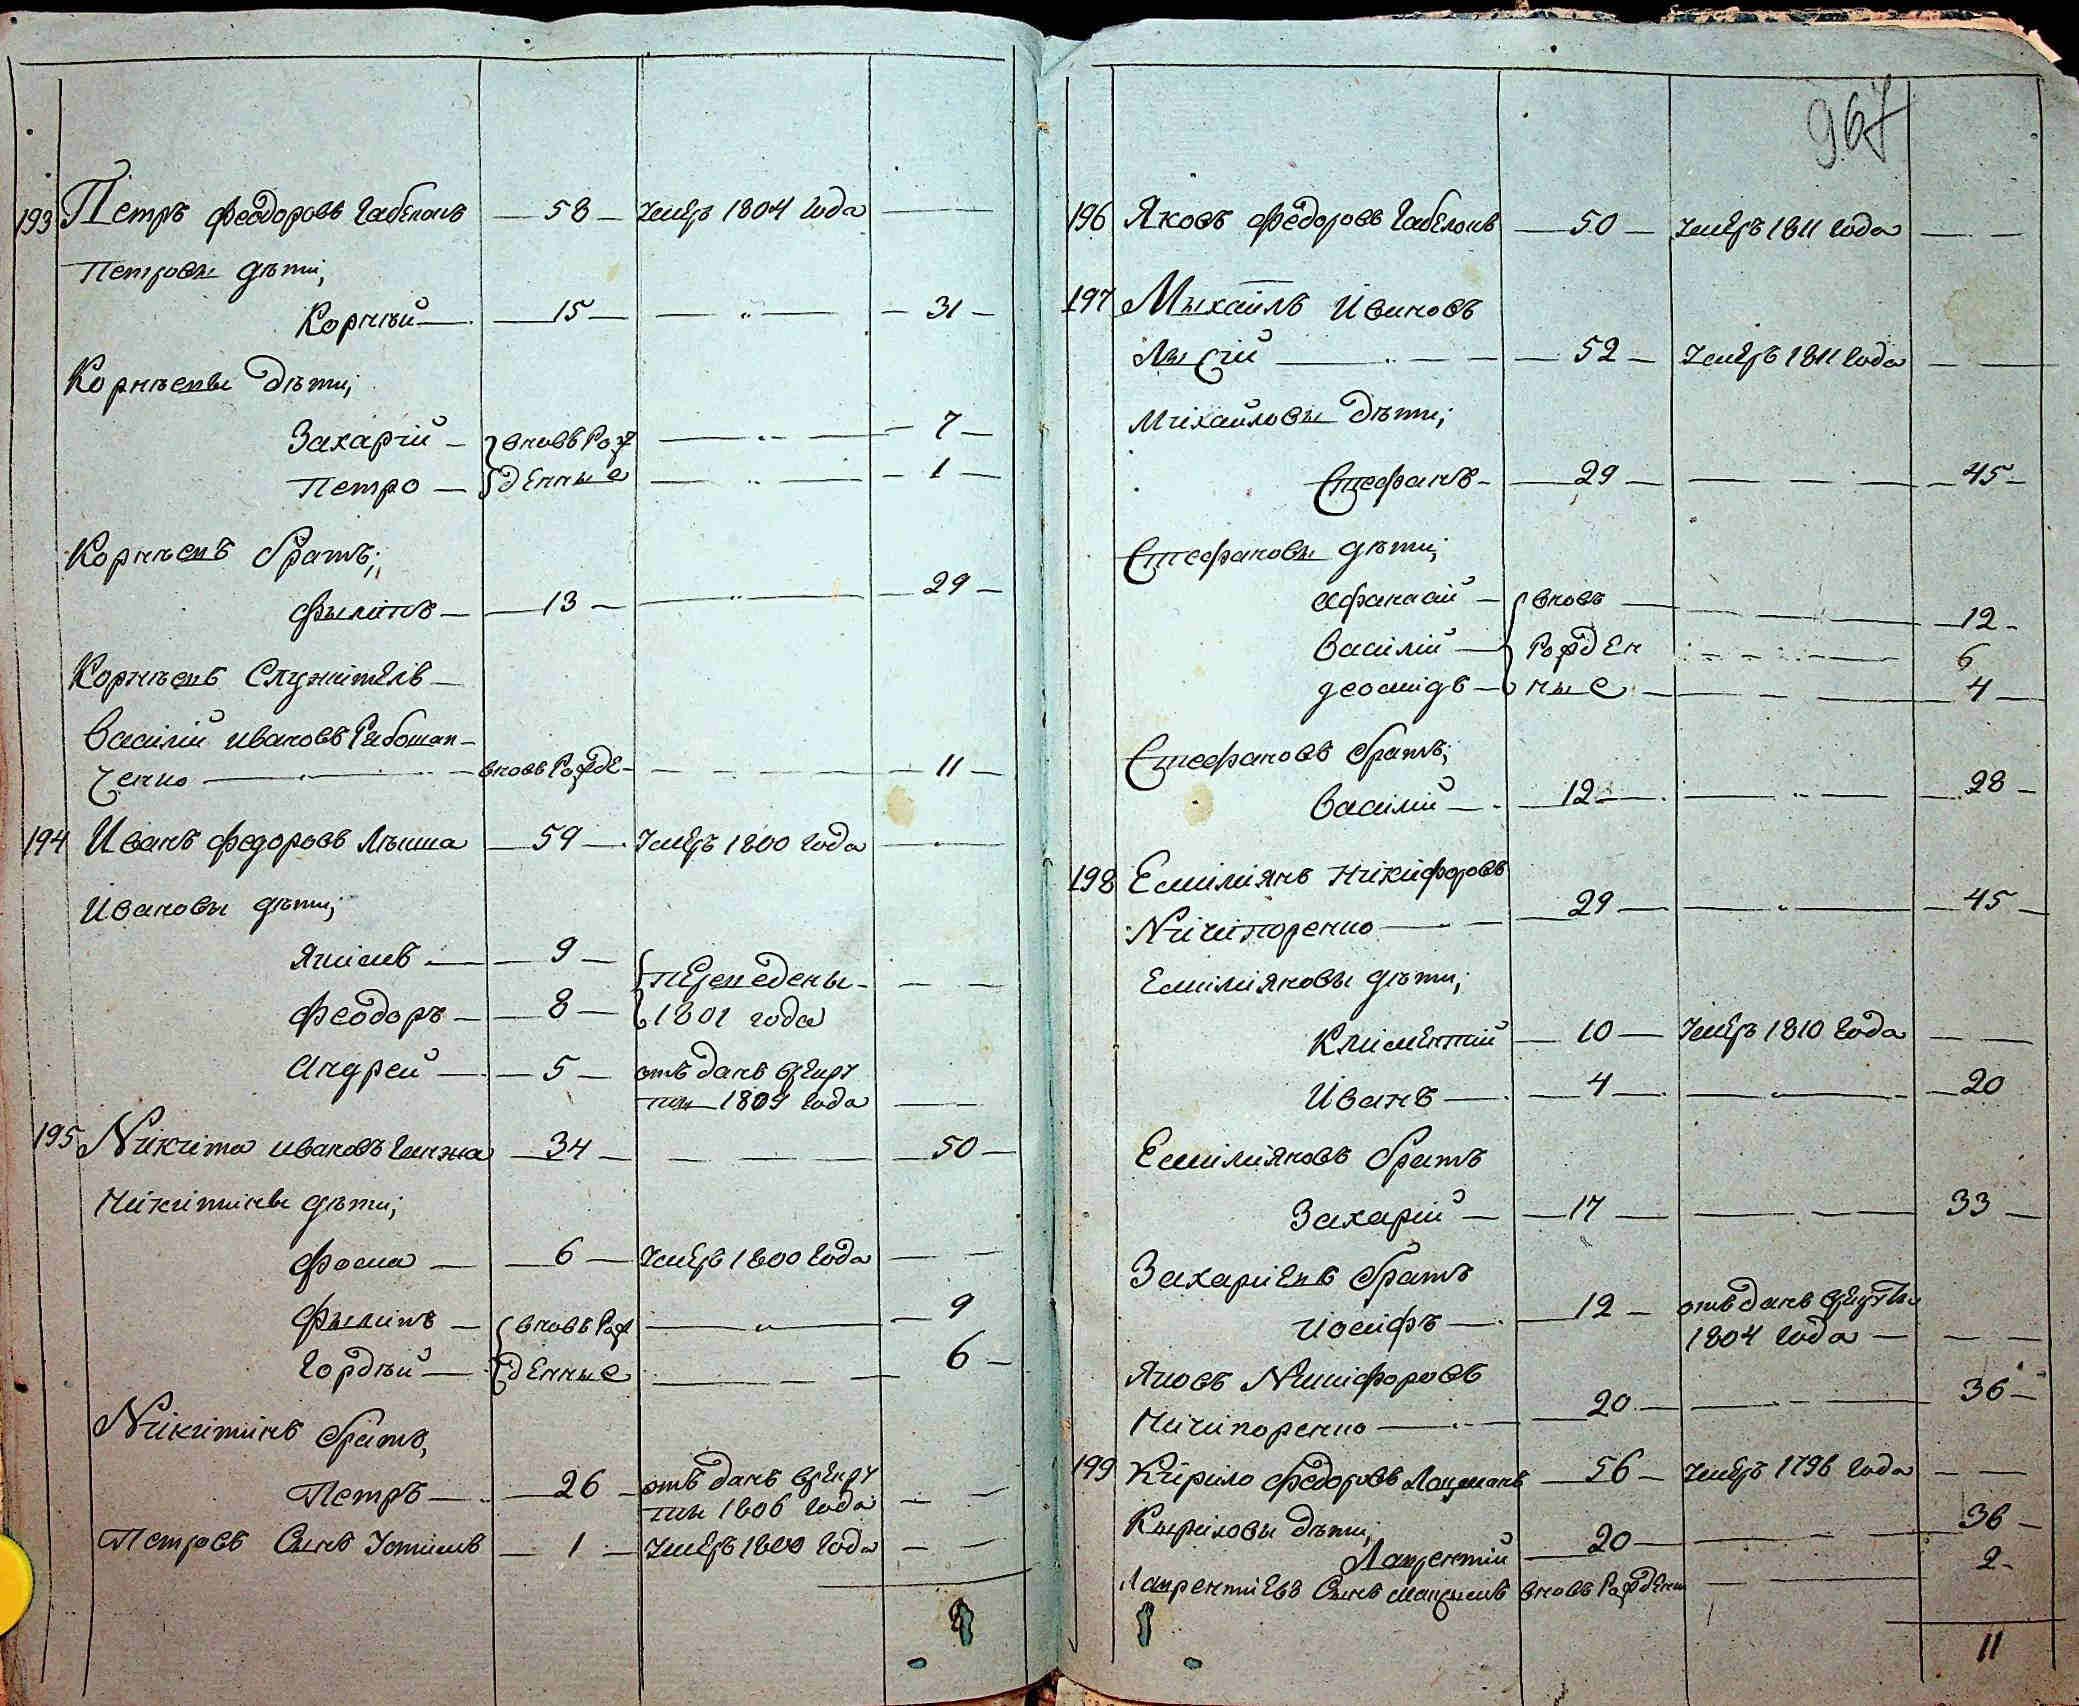 193 Петръ Феодоровъ Габелокъ — 58 — умеръ 1804 года — —
Петровы дѣти;
Корнѣй — 15 — — „ — — 31 —
Корнѣевы дѣти;
Захарій — вновь рож — „ — — 7 —
Петро — денные — „ — — 1 —
Корнѣевъ братъ;
Филипъ — 13 — — „ — — 29 —
Корнѣевъ служитель —
Василій Ивановъ Рабошап-
ченко — вновь рожде- — — 11 —
194 Иванъ Федоровъ — 59 — умеръ 1800 года — —
Ивановы дѣти;
Якимъ — 9 — переведены — —
Феодоръ — 8 — 1801 года
Андрей — 5 — отъ данъ врекру
ты 1809 года — —
195 Никита Ивановъ — 34 — — — 50 —
Никитины дѣти;
Фома — 6 — умеръ 1800 года — —
Филипъ — вновь рож — „ — — 9
Гордѣй — денные — — — 6 —
Никитинъ братъ,
Петръ — 26 — отъ данъ врекру
ты 1806 года — —
Петровъ сынъ Устимъ — 1 — умеръ 1800 года — —
967
196 Яковъ Федоровъ Габелокъ — 50 — умеръ 1811 года — —
197 Михаилъ Ивановъ
Лысій — 52 — умеръ 1811 года — —
Михайловы дѣти;
Стефанъ — 29 — — — 45 —
Стефановы дѣти;
Афанасій — вновь — — 12 -
Василій — рожден — — 6
Деомидъ — ные — — 4 —
Стефановъ братъ;
Василій — 12 — — „ — — 28 —
198 Емиліянъ Никифоровъ
Ничипоренко — 29 — — „ — — 45 —
Емиліяновы дѣти;
Климентій — 10 — умеръ 1810 года — —
Иванъ — 4 — — „ — — 20
Емиліяновъ братъ
Захарій — 17 — — — 33 —
Захаріевъ братъ
Иосифъ — 12 — отъ данъ врекруты
1804 года — — —
Яковъ Никифоровъ
Ничипоренко — 20 — — — 36 —
199 Кирило Федоровъ Лоцманъ — 56 — умеръ 1796 года — —
Кириловы дѣти;
Лаврентій — 20 — — — 36 —
Лаврентіевъ сынъ Максимъ вновь рожденъ — — 2 -
11